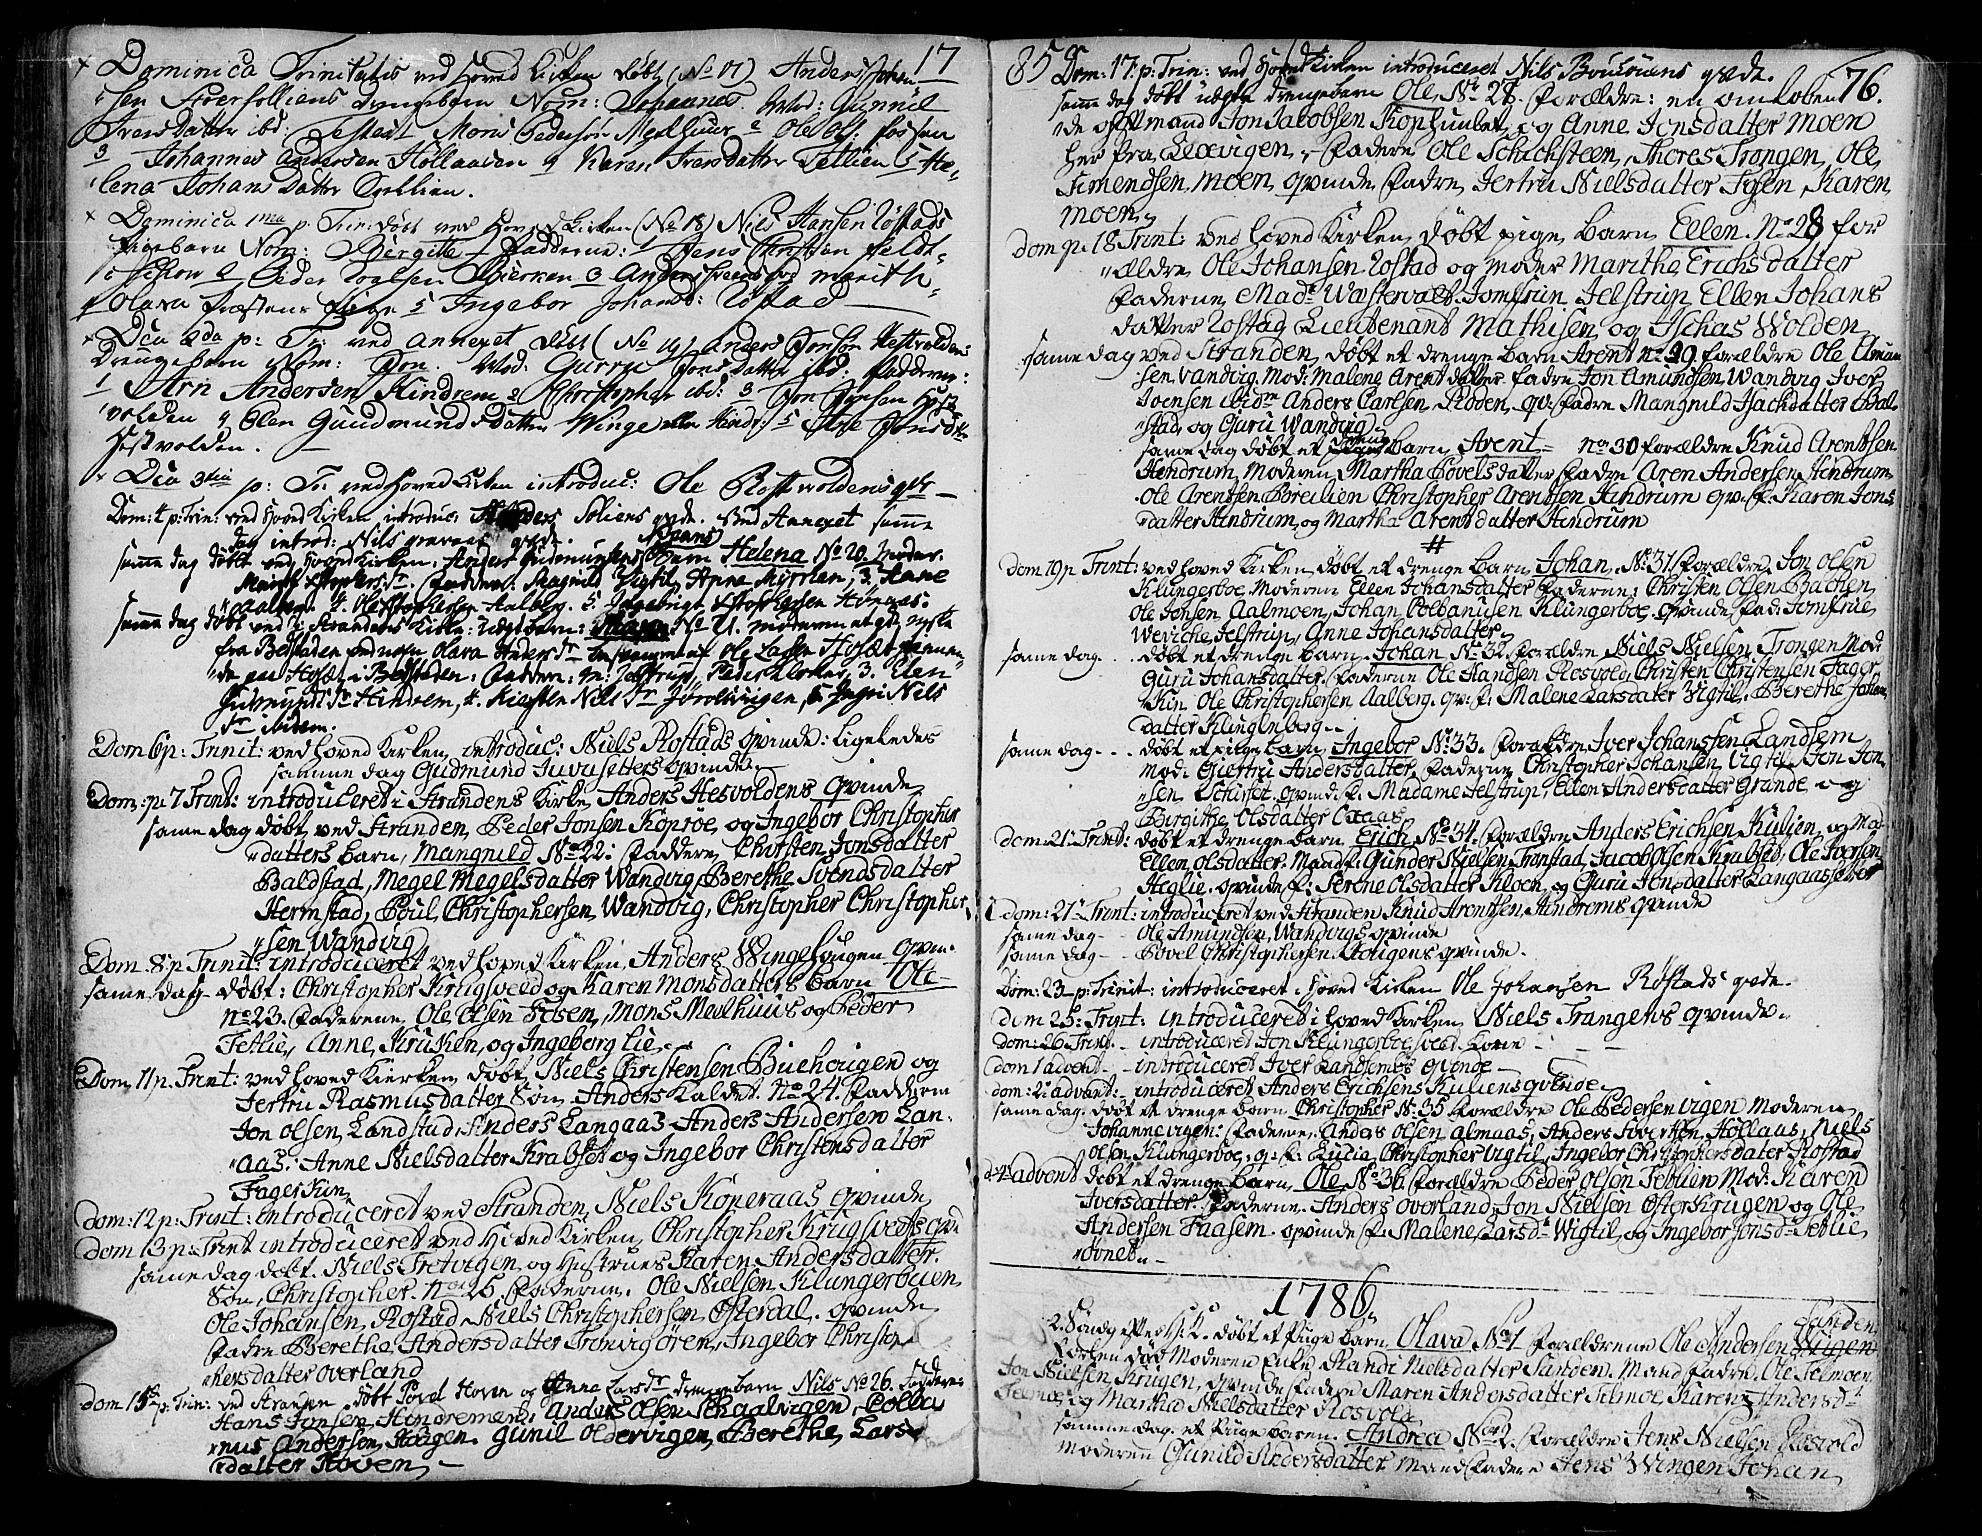 17
Dominica Trinitatis ved Hoved Kirken døbt (No 17) Anders Johan
sen drengebarn Nom: Johannes. Mod: Gunnil
Ivers Datter ibd: Mons Pedersøn Medhuus 2 Ole
3 Johannes Andersen Hollaasen 4 Karen Iversdatter Tetlien 5 He-
lena Johans Datter
Dominica 1ma p: Trin: døbt ved Hoved Kirken (No 18) Niels Hansen Rostads
Pigebarn Nom: Birgitte Fadderne: 1 Jens Christian Feldt-
2 Peder 3 Anders
Olava Præstens Pige 5 Ingebor Johansd: Rostad
Dca 2da p: Tr: ved Annexet døbt (No 19) Anders Jonsøn Hestvoldens
Drengebarn Nom: Jon. Mod: Gurru Jonsdatter ibd: Fadderne:
1 Arn Andersen Hindrem 2 Christopher ibd: 3 Jon Jonsen Hest-
volden 4 Elen Gundmunds Datter Winge 5 Ane Jonsdtr
Hestvolden.
Dca 3tia p: Tr: ved Hoved Kirken introduc: Ole Rostvoldens qv-
Dom: 4 p: Trin: ved Hoved Kirken introduc: Anders Soliens qvde. ved Annexet samme
dag introd: Nils qvde.
samme dag døbt ved Hoved Kirken, Anders Gudmundsens Barn Helena No 20. Moder
Fadderne: Ragnild Vigtil, Anna Myrslen, 3. Anne
Aalberg. 4. Ole Aalberg. 5. Ingebrigt Hinaas.
samme dag døbt ved i Strandens Kirke: No 21. moderen
fra Bedstaden ved navn Olava Anders Dr Ole Larsen
Fadderne: Jelstrup, Peder Klocker, 3. Elen
Gudmunds Dr Hindrem, 4. Kiersten Nils Dr 5. Ingri Nils
Dr ibidem.
Dom 6 p: Trinit: ved hoved Kirken, introduc: Niels Rostads qvinde: Ligeledes
samme dag Gudmund qvinde
Dom: p: 7 Trint: introduceret i Strandens Kirke, Anders Hesvoldens Qvinde
same dag døbt, ved Stranden, Peder Jonsen Koproe, og Ingebor Christopher
datters barn, Mangnild No 22: Faddere, Chirsten Jonsdatter
Baldstad, Megel Megelsdatter Wandvig, Berethe Svendsdatter
Hermstad, Poul, Christophersen, Wandvig, Christopher Christopher
sen Wandvig
Dom. 8 p Trinit: introduceret ved hoved Kirken, Anders Wingehougen qvin.
same dag døbt: Christopher Krugsveed og Karen Monsdatters barn Ole
No 23. Faderene, Ole Olsen Fosen, Mons Medhuus og Peder
Tetlie, Anne, Kruken, og Ingeborg lie
Dom. 11 p. Trint: ved hoved Kierken døbt Niels Christensen Buehougen og
Jertru Rasmusdatter Søn, Anders Kaldet. No 24. Faddere
Jon Olsen, Landstad, Anders Langaas, Anders Andersen Lan-
aas. Anne Nielsdatter Krabset og Ingebor Christensdatter
Fagerkin
Dom: 12 p: Trint: introduceret ved Stranden, Niels Koperaas qvinde
Dom 13 p: Trint introduceret ved Hoved Kirken, Christopher Krugsveets qvi
same dag døbt. Niels Trotvigen, og Hustrues Karen Andersdatter.
Søn, Christopher. no 25. Faderne. Ole Nielsen, Klungerbuen
Ole Johansen, Rostad, Niels Christophersen, Osterdal. qvinde
Fadre Berethe, Andersdatter Tronvigoren, Ingebor Christo
phersdatter overland
Dom 15 p: Trin: ved Stranden døbt Povel Hoven og Anna Larsdr drengebarn Nils No 26. Faddere
Hans Jonsen Anders Olsen Schaalvigen, Polka
nus Andersen, Haugen. Gunil Oldervigen, Berethe, Lars
datter Hoven,
85 76.
Dom: 17. p: Trin: ved Hoved Kirken introduceret Nils Bouhouens qvde.
same dag døbt uægte drengebarn Ole No 27. Forældre: en omløben
de gift mand Jon Jacobsen Kophumlet og Anne Jonsdatter Moen
her fra Lexvigen, Fadere Ole Schichsteen, Thores Trongen, Ole
Simendsen moen, qvinde Fadre, Jertru Nielsdatter Fosen, Karen
moen
Dom p. 18 Trint: ved hoved Kirken døbt pige barn Ellen No 28 for
ældre Ole Johansen Rostad og moder Marithe Erichs datter
Faderne Made Wæsterwald Jomfrue Jelstrup Ellen Johans
datter Rostag Lieutenant Mathisen og Ischas Wolden
same dag ved Stranden, døbt et drenge barn Arent no 29 forældre Ole Amun
sen Vandvig. Mod: Malene Arent datter Fadre Jon Amundsen, Wandvig Iver
Joensen ibidm Anders Carlsen Lidden, qv: Fadre Mangnild Isachdatter Bal-
stad, og Guru Wandvig
same dag døbt et Drenge Barn Arent no 30 forældre Knud Arentsen
Hindrum, Moderen Martha Povelsdatter Fadre Aren Andersen Hindrum
Ole Arentsen Breilien Christopher Arentsen Hindrum qv: F: Karen Jons
datter Hindrum, og Martha Arentsdatter Hindrum
#
Dom 19 p Trint: ved hoved Kirken døbt et drenge Barn Johan, No 31. Forældre, Jon Olsen
Klungerboe, Moderen Ellen Johansdatter Faderne: Christen Olsen Bachen
Ole Jonsen Aalmoen, Johan Klungerboe, qvinde Fad: Jomfrue
Weviche Jelstrup, Anne Johansdatter
same dag døbt et drenge barn Johan No 32. Forældre Niels Nielsen, Trongen Mod:
Guru Johansdatter, Faderne Ole Hansen Rosvold, Christen Christensen Fager
Kin Ole Christophersen Aalberg. qv: F: Malene Larsdater Vigtil, Berethe Johan
datter Klungenberg
same dag døbt et Pige barn, Ingebor No 33. Forældre Iver Johanssen Landsem
Mod: Giertru Andersdatter, Faderne, Christopher Johansen, Vigtil, Jon Jon
sen Schirset. qvind: F: Madame Jelstrup, Ellen Andersdatter Grande og
Birgithe Olsdatter
Dom: 21 Trint: døbt et drenge barn, Erich No 34. Forældre, Anders Erichsen Kulien, og Mod-
Ellen Olsdatter. Mand f: Gunder Nielsen Tronstad, Jacob Olsen Krabset, Ole Iversen
Heglie qvinde f: Serene Olsdatter Kloen, og Guru Jonsdatter Langaas
Dom: 21 Trint: introduceret ved Stranden Knud Arentsen, Hindroms qvinde
same dag Ole Amundsen, Wandvigs qvinde
same dag Povel Christophersen Hougens qvinde.
Dom: 23 p: Trinit: introduceret i hoved Kirken Ole Johansen Rostads qvde.
Dom 25: Trint: introduceret i hoved Kirken, Niels Trangens qvinde
Dom: 26 Trint: introduceret Jon Klungerboe
Dom 1 advent introduceret Iver Landsembs qvinde
Dom: 2: advent: introduceret Anders Erichsens Kuliens qvinde
same dag. døbt et drenge barn Christopher No 35 Forældre Ole Pedersen vigen Moderen
Johanne vigen: Faderne, Anders Olsen Almaas, Anders Siverssen Hollaas, Niels
Olsen Klungerboe, qv: F: Lucia, Christopher Vigtil, Ingebor Christophersdater Rostad
d: 4 advent døbt et drenge barn, Ole No 36 Forældre Peder Olsen Tetlien Mod: Karen
Iversdatter. Faderne. Anders Overland, Jon Nielsen Øster Krugen og Ole
Andersen Faasem. qvinde F: Malene Larsd: Wigtil, og Ingebor Jonsd: Tetlie
ovned
1786
2. Søndg: efter H: K. døbt et Pige barn. Olava No 1 Forældrene Ole Andersen Sanden
død Moderen Enke Randi Nielsdatter Sanden. Mand Fadre, Ole Selmoe.
Jon Nielsen Krugen, qvinde Fadere Maren Andersdatter Selmoe, Karen Andersd:
Selmoe, og Martha Nielsdatter Rosvold
samme dag et Pige baren. Andrea No 2. Forældre Jens Nielsen Rosvold
Moderen Gunild Andersdatter Mand Fadere Jens Wingen Johan